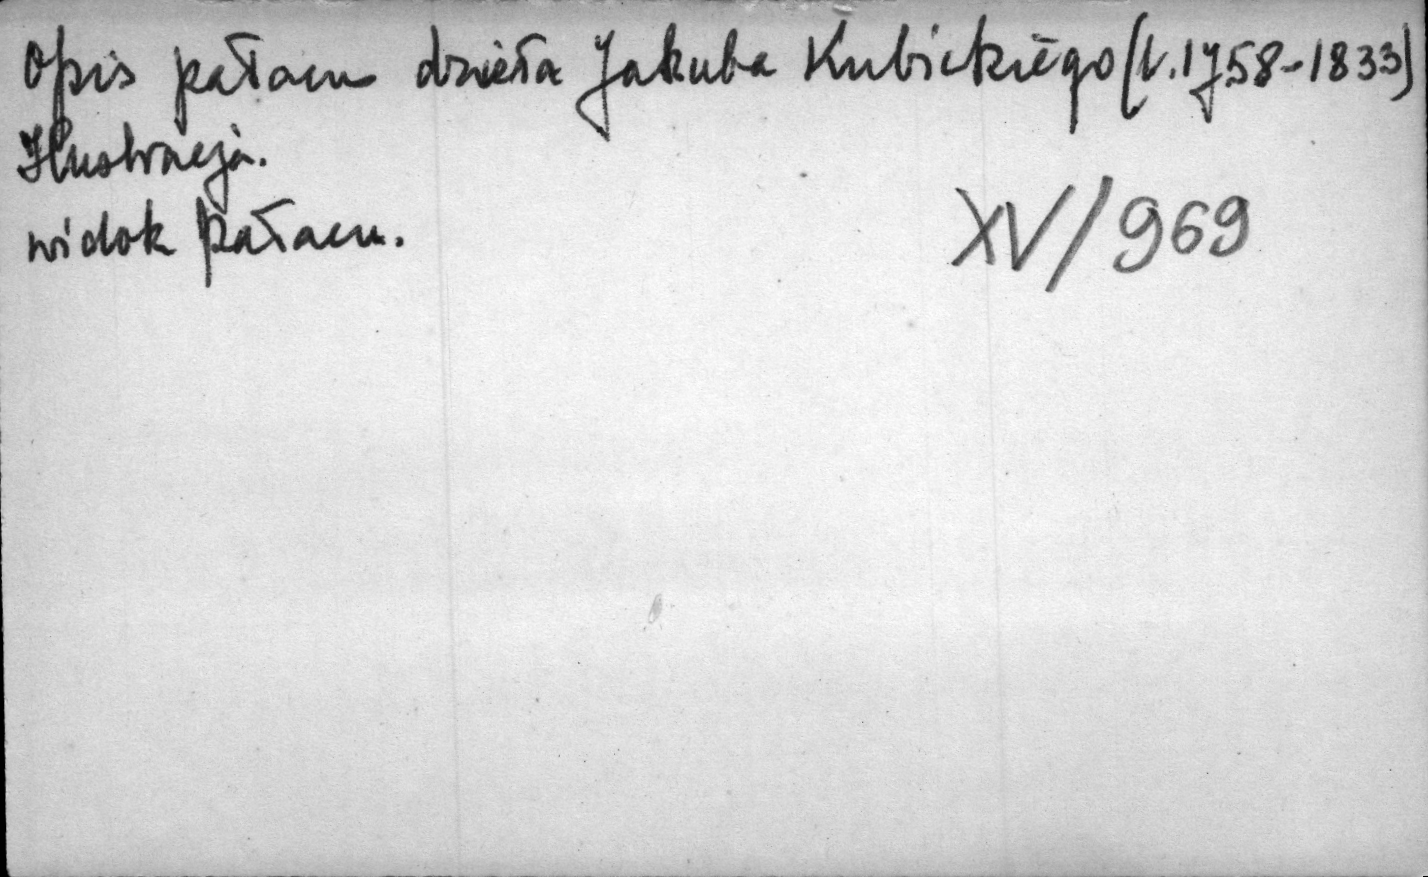 Opis pałacu dzieła Jakuba Kubickiego (l. 1758-1833)
Ilustracja.
widok pałacu.
XV/969